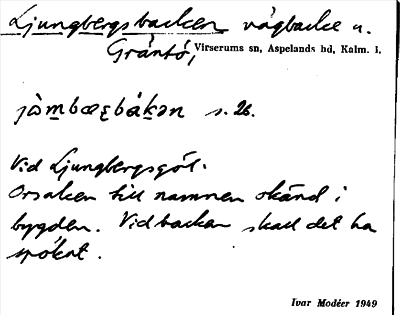 Ljungbergsbacken vägbacke u.
Gråntó, Virserums sn, Aspelands hd, Kalm. l.
jòm̲bæʒbák̲ən s. 26.
Vid Ljungbergsgöl.
Orsaken till namnen okänd i
bygden. Vid backen skall det ha
spókat.
Ivar Modéer 1949